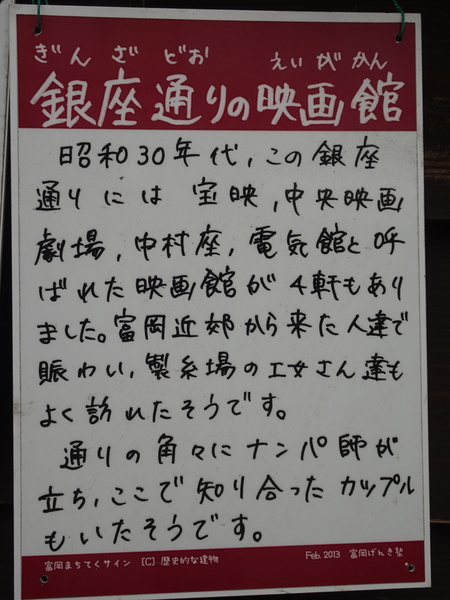 ぎんざどお えいがかん
銀座通りの映画館
昭和30年代,この銀座
通りには 宝映,中央映画
劇場,中村座,電気館と呼
ばれた映画館が 4軒もあり
ました。富岡近郊から来た人達で
賑わい,製糸場の工女さん達も
よく訪れたそうです。
通りの角々にナンパ師が
立ち,ここで知り合ったカップル
もいたそうです。
富岡まちてくサイン [C] 歴史的な建物 Feb. 2013 富岡げんき塾